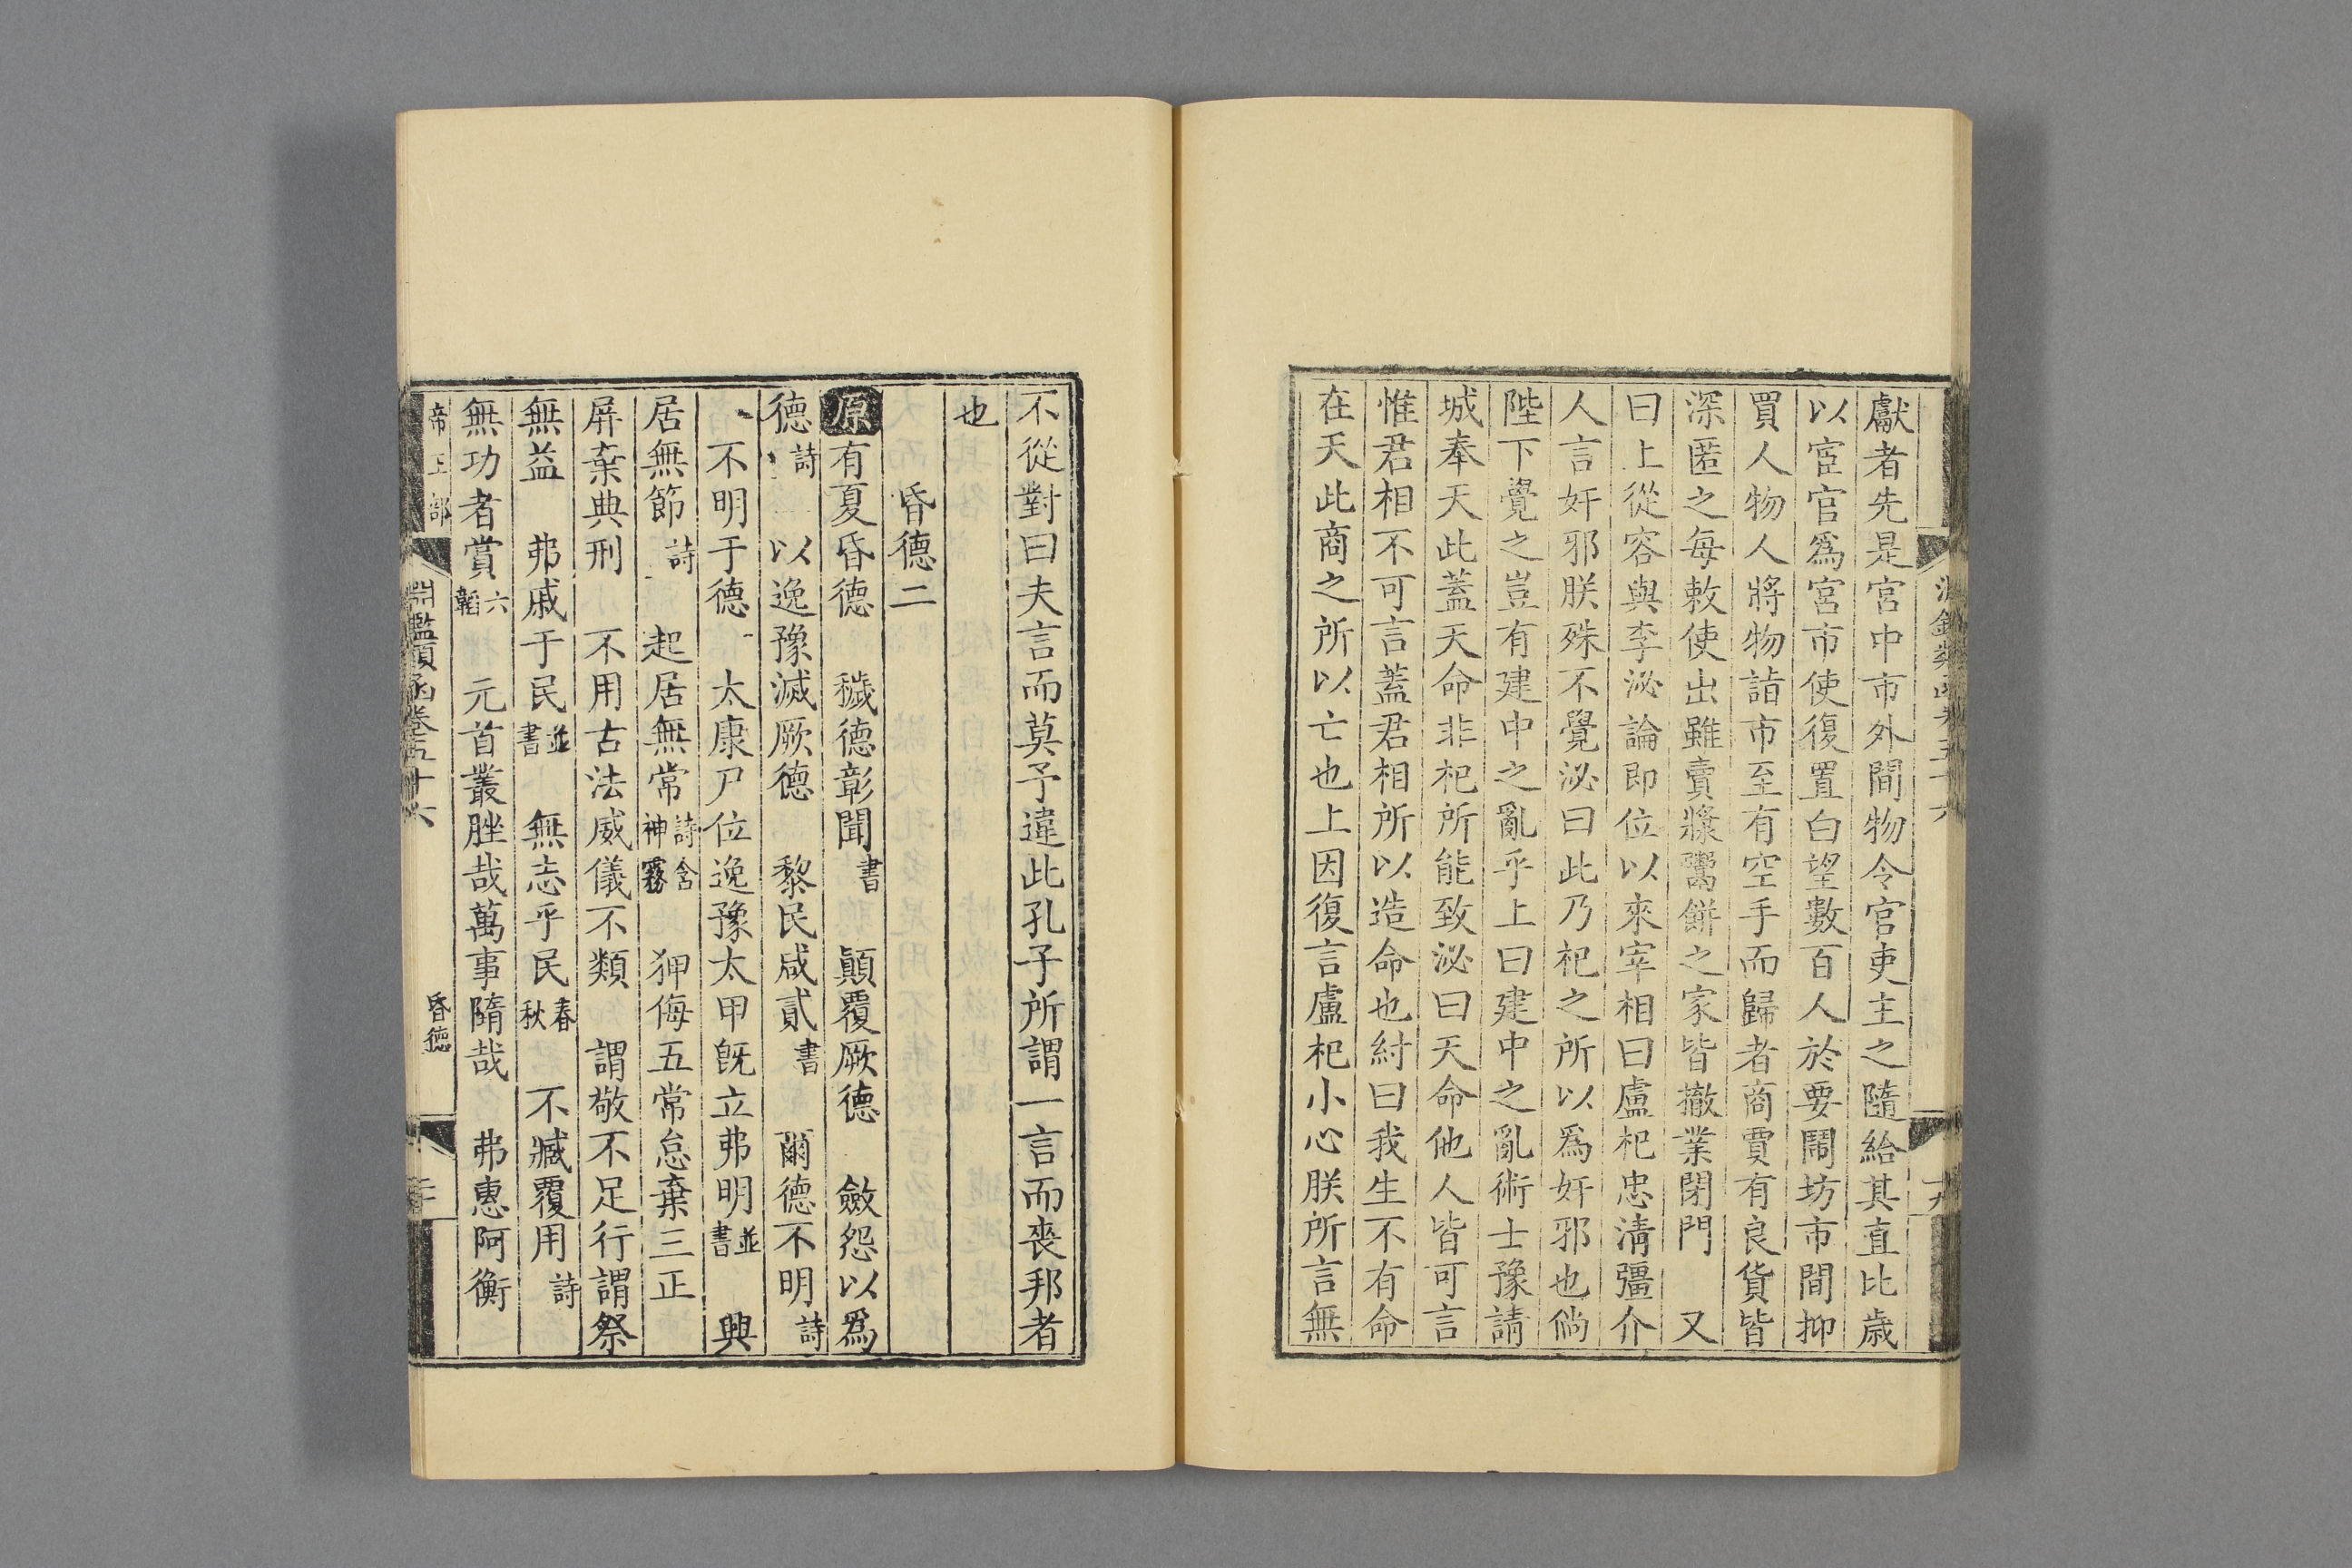 獻者先是宮中市外間物令官吏主之隨給其直比歲
以宦官爲宮市使復置白望數百人於要鬧坊市間抑
買人物人將物詣市至有空手而歸者商賈有良貨皆
深匿之每敕使出雖賣漿鬻餅之家皆撤業閉門　又
曰上從容與李泌論即位以來宰相曰盧杞忠淸彊介
人言奸邪朕殊不覺泌曰此乃杞之所以爲奸邪也倘
陛下覺之豈有建中之亂乎上曰建中之亂術士豫請
城奉天此蓋天命非杞所能致泌曰天命他人皆可言
惟君相不可言蓋君相所以造命也紂曰我生不有命
在天此商之所以亡也上因復言盧杞小心朕所言無
不從對曰夫言而莫予違此孔子所謂一言而喪邦者
也
昏德二
原有夏昏德　穢德彰聞書　顚覆厥德　斂怨以爲
德詩　以逸豫滅厥德　黎民咸貳書　爾德不明詩
不明于德　太康尸位逸豫太甲旣立弗明並書　興
居無節詩　起居無常詩含神霧　狎侮五常怠棄三正
屏棄典刑　不用古法威儀不類　謂敬不足行謂祭
無益　弗戚于民並書　無志乎民春秋　不臧覆用詩
無功者賞六韜　元首叢脞哉萬事隋哉　弗惠阿衡
帝王部　淵鑑類函卷五十六　昏德